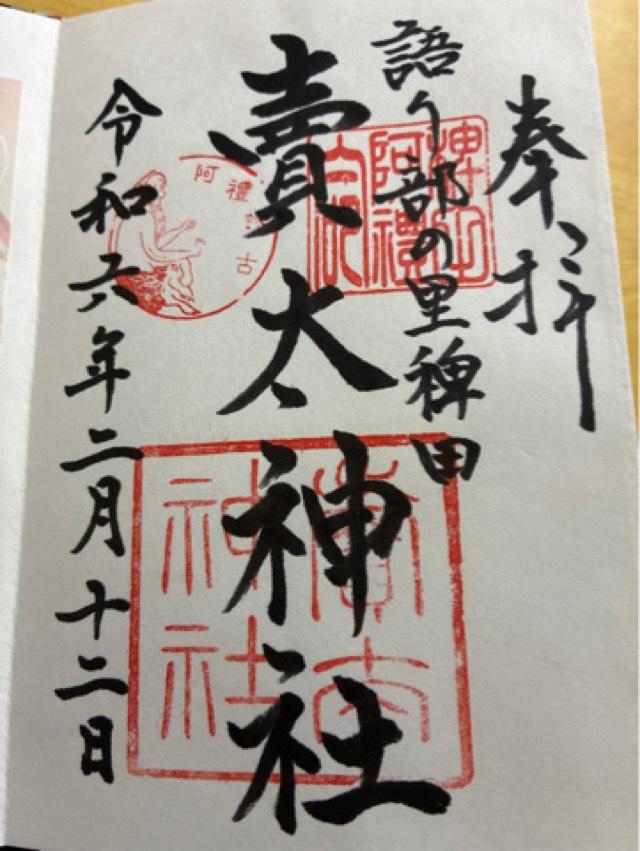 奉拝
語り部の里稗田
賣太神社
令和六年二月十二日
阿禮
古
賣太
神社